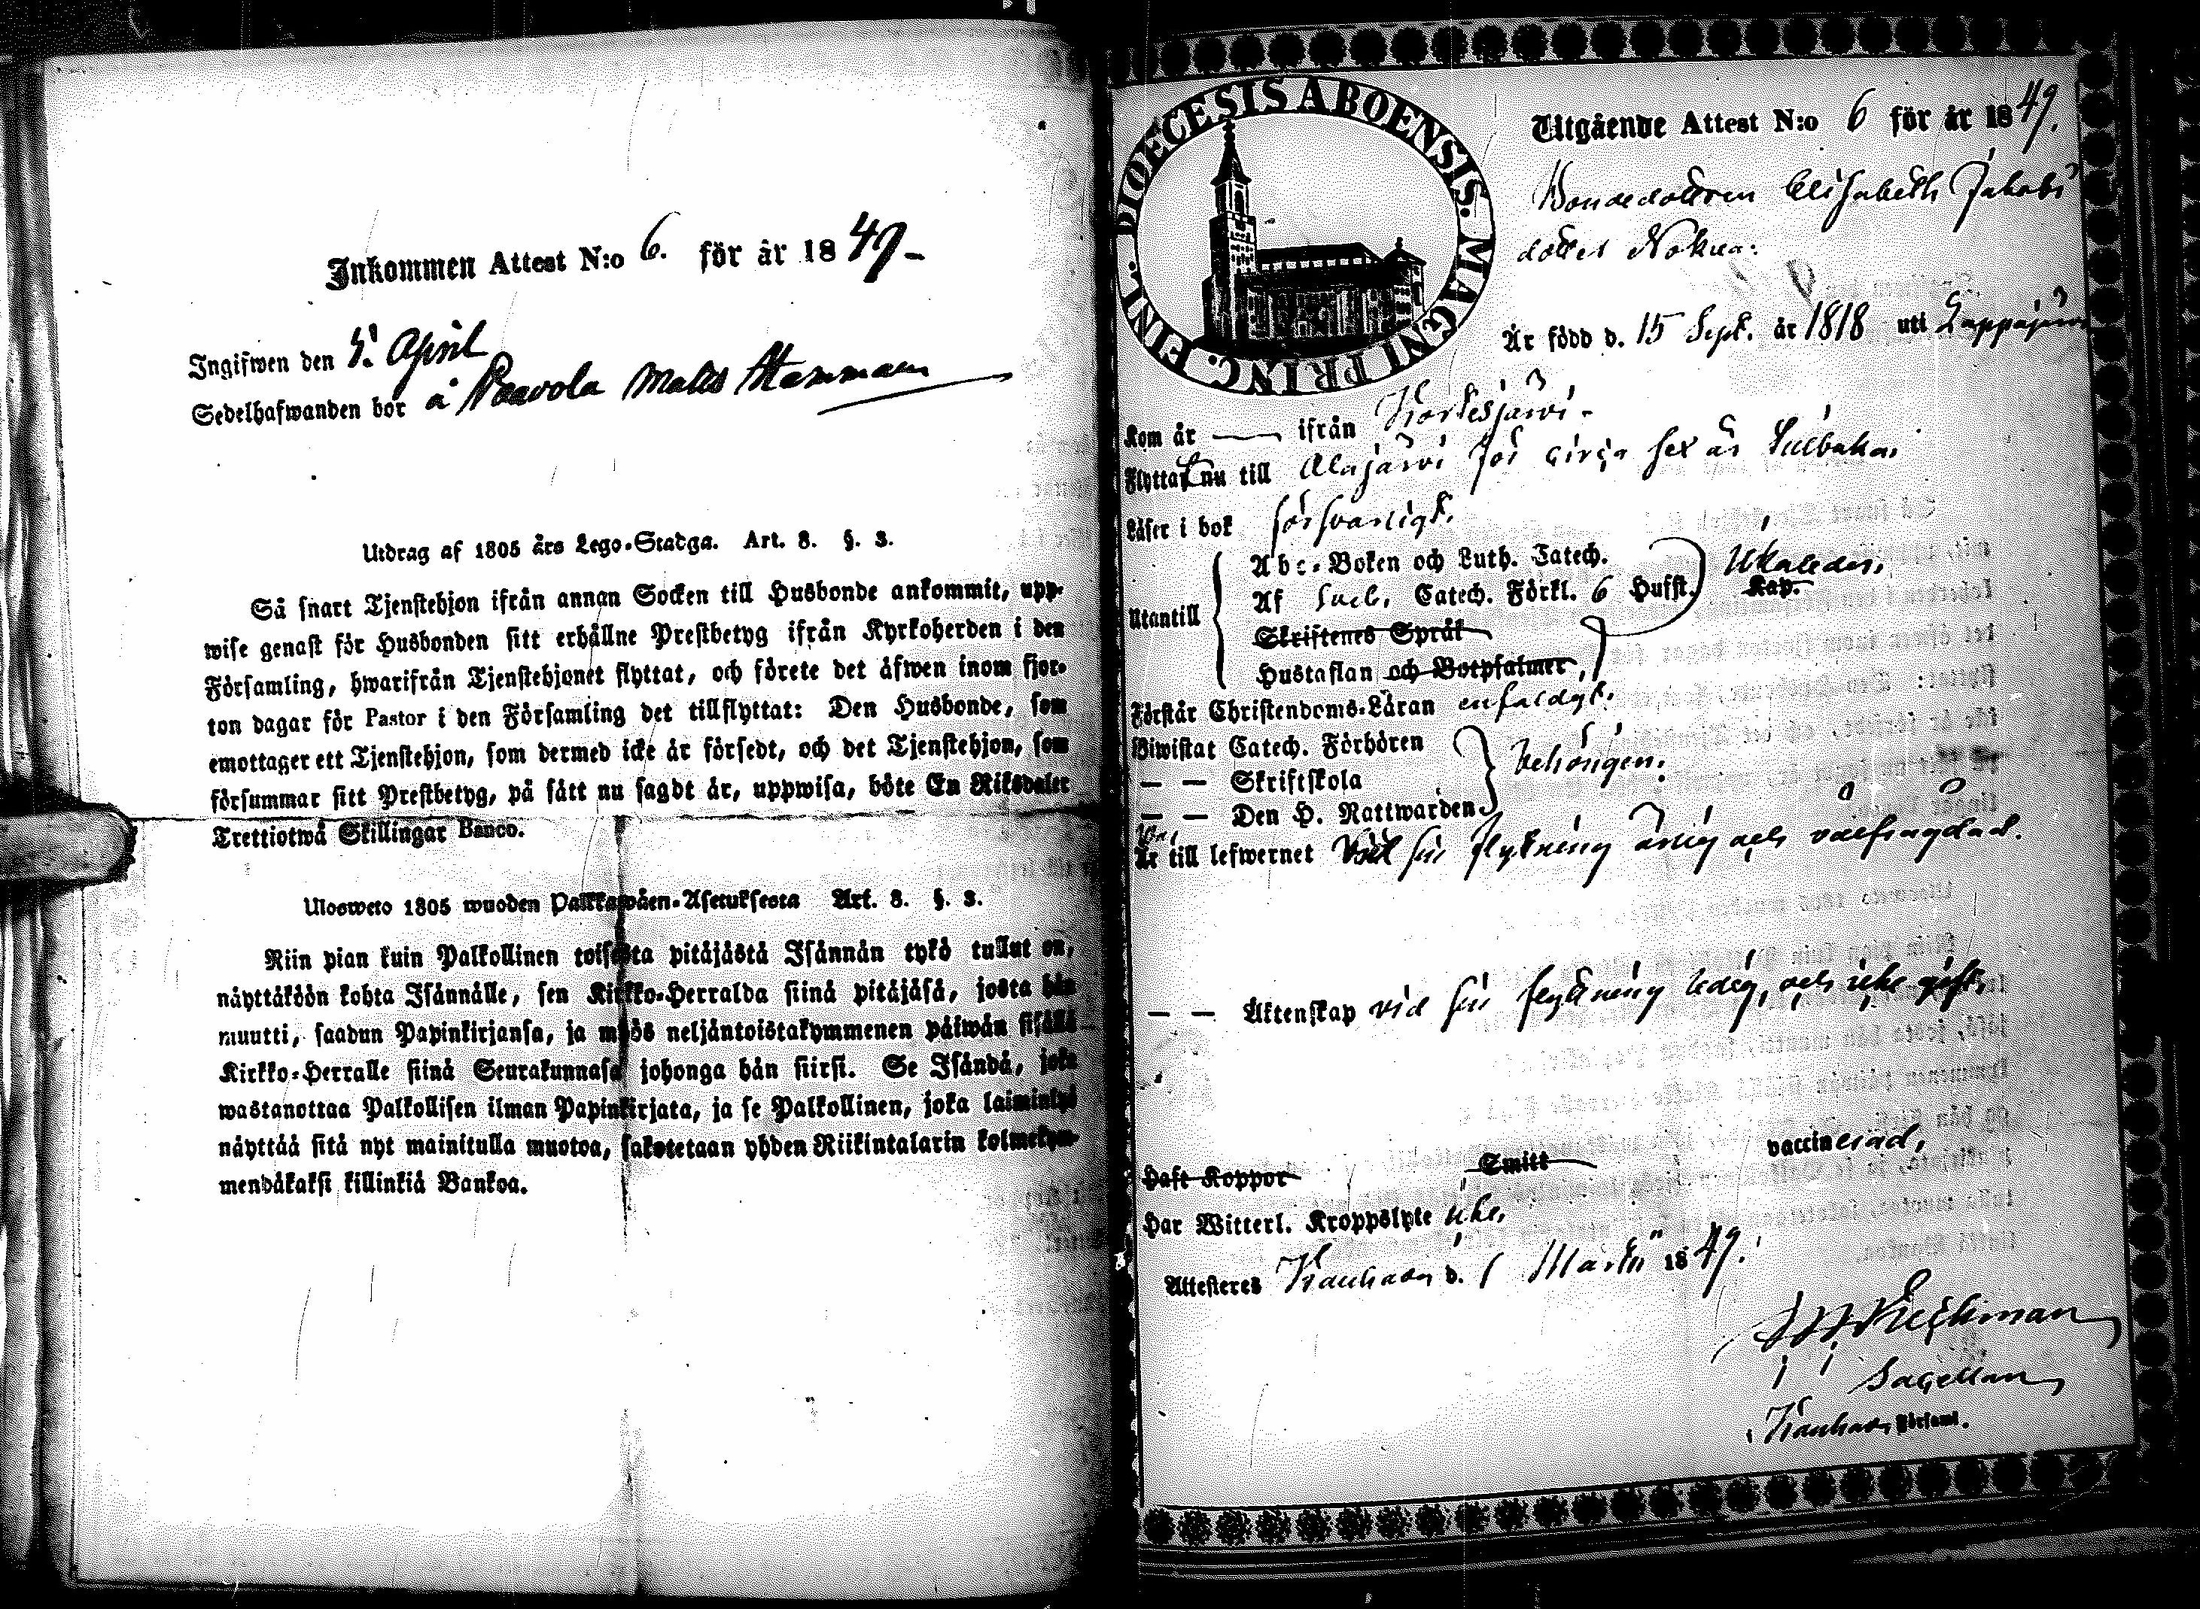 Inkommen Attest N:o 6. för år 1849 -
Ingifwen den 5. April
Sedelhafwanden bor å Paavola Matts Hemman
Utdrag af 1805 års Lego-Stadga. Art. 8. §. 3.
Så snart Tjenstehjon ifrån annan Socken till Husbonde ankommit, upp-
wise genast för Husbonden sitt erhållne Prestbetyg ifrån Kyrkoherden i den
Församling, hwarifrån Tjenstehjonet flyttat, och förete det äfwen inom fjor-
ton dagar för Pastor i den Församling det tillflyttat: Den Husbonde, som
emottager ett Tjenstehjon, som dermed icke är försedt, och det Tjenstehjon, som
försummar sitt Prestbetyg, på sätt nu sagdt är, uppwisa, böte En Riksdaler
Trettiotwå Skillingar Banco.
Ulosweto 1805 wuoden Palkkawäen-Asetuksesta Art. 8. §. 3.
Niin pian kuin Palkollinen toisesta pitäjästä Isännän tykö tullut on,
näyttäköön kohta Isännälle, sen Kirkko-Herralda siinä pitäjäsä, josta hän
muutti, saadun Papinkirjansa, ja myös neljäntoistakymmenen päiwän sisällä
Kirkko-Herralle siinä Seurakunnasa johonga hän siirsi. Se Isändä, joka
wastanottaa Palkollisen ilman Papinkirjata, ja se Palkollinen, joka laiminlyö
näyttää sitä nyt mainitulla muotoa, sakotetaan yhden Riikintalarin kolmekym-
mendäkaksi killinkiä Bankoa.
DIOECESIS ABOENSIS. MAGNI PRINC. FINL.
Utgående Attest N:o 6 för år 1849.
Bondedottren Elisabeth Jakobs
dotter Nokua:
Är född d. 15 Sept. år 1818 uti Lappajärvi
Kom år — ifrån Kortesjärvi -
Flyttat nu till Alajärvi för circa sex år tillbaka.
Läser i bok försvarligt.
Utantill
Abc-Boken och Luth. Catech.
Af Catech. Förkl. 6 Hufst. Kap.
Skriftenes Språk
Hustaflan och Botpsalmer,
Förstår Christendoms-Läran enfaldigt.
Biwistat Catech. Förhören
— — Skriftskola behörigen.
— — Den H. Nattwarden
Är till lefwernet vid sin flyttning ärlig och välfrägdad.
— — Äktenskap vid sin flyttning ledig, och icke gift.
Haft Koppor Smitt vaccinerad,
Har Witterl. Kroppslyte icke,
Attesteres Kauhava d. 1 Martii 1849.
Sacellan
i Kauhava Församl.